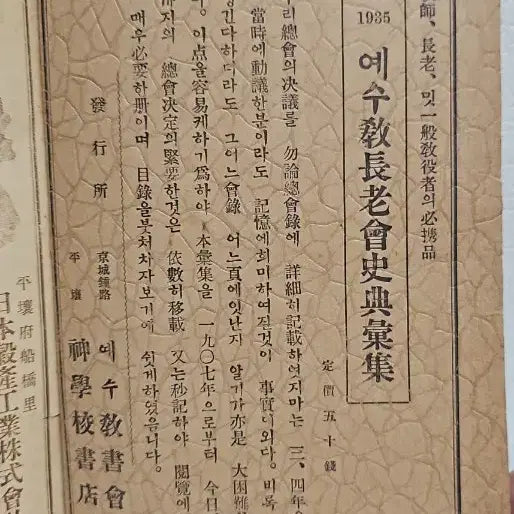 師、長老、밋一般敎役者의必携品
1935
예수敎長老會史典彙集
定價五十錢
리總會의决議를 勿論總會錄에 詳細히記載하여지마는 三、四年
當時에動議한분이라도 記憶에희미하여진것이 事實이외다。비록
긴다하더라도 그어느會錄 어느頁에잇난지 알기가亦是 大困難
다。이点을容易케하기爲하야 本彙集을 一九〇七年으로부터 今日
지의 總會决定의緊要한것은 依數히移載 又는秒記하야 閱覽에
매우必要하册이며 目錄을붓처차자보기에 쉽게하엿읍니다。
發行所
京城鍾路 예수敎書會
平壤 神學校書店
平壤府船橋里
日本穀產工業株式會